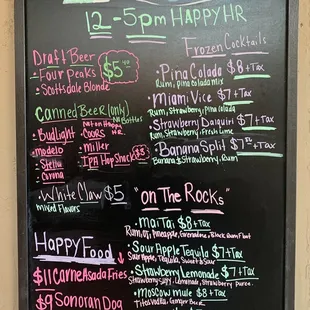 12-5pm HAPPY HR
Draft Beer
- Four Peaks
- Scottsdale Blonde
$5
Canned Beer (only)
No Bottles
• Budlight
• modelo
• Stella
• Corona
Not on Happy HR
• COORS
• Miller
• IPA Hop Shock
$3
• White Claw $5
mixed Flavors
HAPPY FOOD
$11 Carne Asada Fries
$9 Sonoran Dog
Frozen Cocktails
• Pina Colada $8 + Tax
Rum, pina colada mix
• Miami Vice $7 + Tax
Rum, Strawberry, Pina colada
• Strawberry Daiquiri $7 + Tax
Rum, Strawberry, Fresh Lime
• Banana Split $7 + Tax
Banana, Strawberry, Rum
"on THE ROCKs"
• Mai Tai $8 + Tax
Rum, DJ, Pineapple, Grenadine, Black Rum Float
• Sour Apple Tequila $7 + Tax
Sour Apple, Tequila, Sweet & Sour
• Strawberry Lemonade $7 + Tax
Lemonade, Strawberry Puree
• Moscow mule $8 + Tax
Tito's Vodka, Ginger Beer